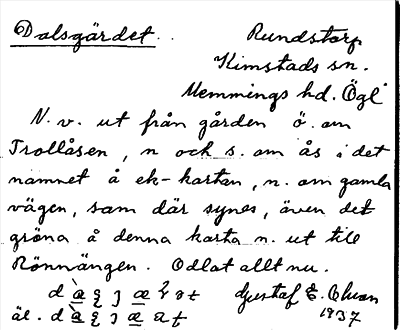 Dalsgärdet. Rundstorp
Kimstads sn.
Memmings hd. Ögl
N. v. ut från gården ö. om
Trollåsen, n och s. om ås i det
namnet å ek-kartan, n. om gamla
vägen, som där synes, även det
gröna å denna karta n. ut till
Rönnängen. Odlat allt nu.
Gustaf E. Olson
äl. 1937